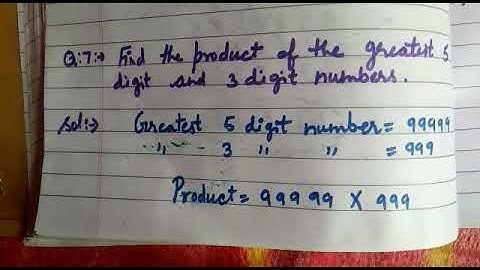 Q:7:→ Find the product of the greatest 5
digit and 3 digit numbers.
Sol:→ Greatest 5 digit number = 99999
" 3 " " = 999
Product = 99999 X 999